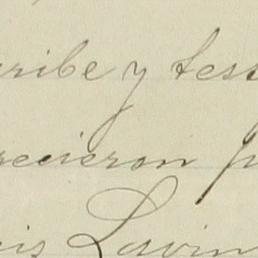 cribe y tes
recieron p
is Lavin